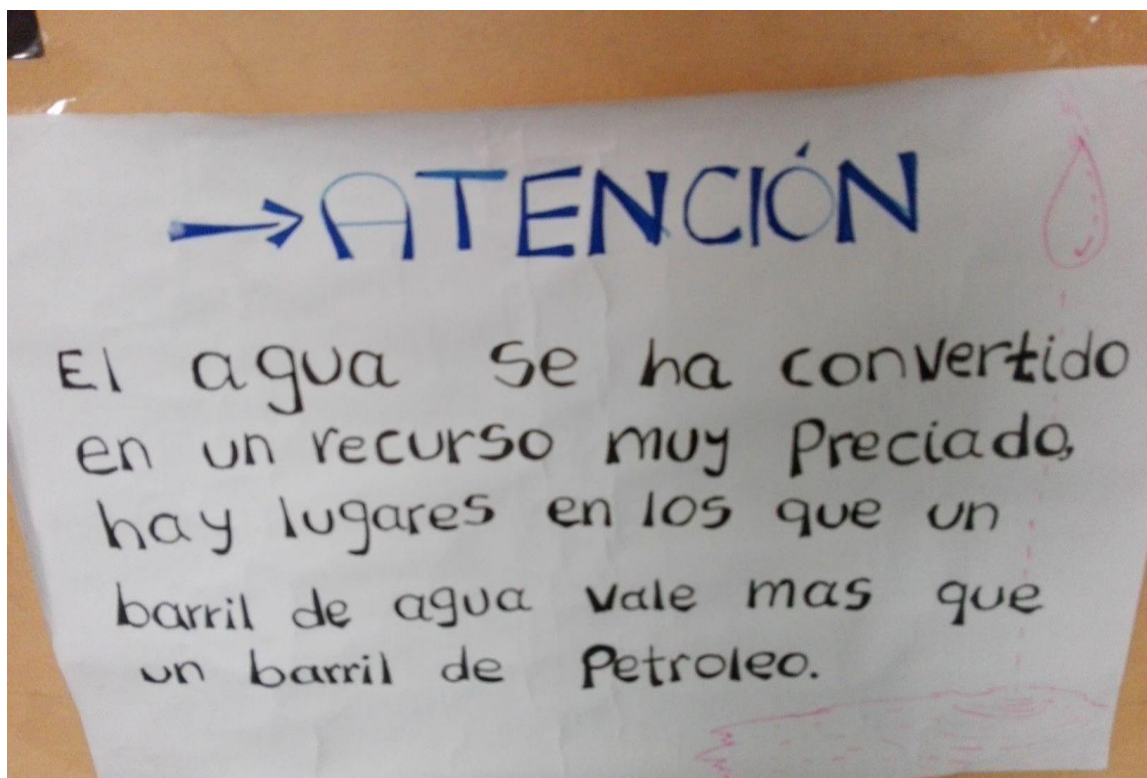 →ATENCIÓN
El agua se ha convertido
en un recurso muy Preciado,
hay lugares en los que un
barril de agua vale mas que
un barril de Petroleo.